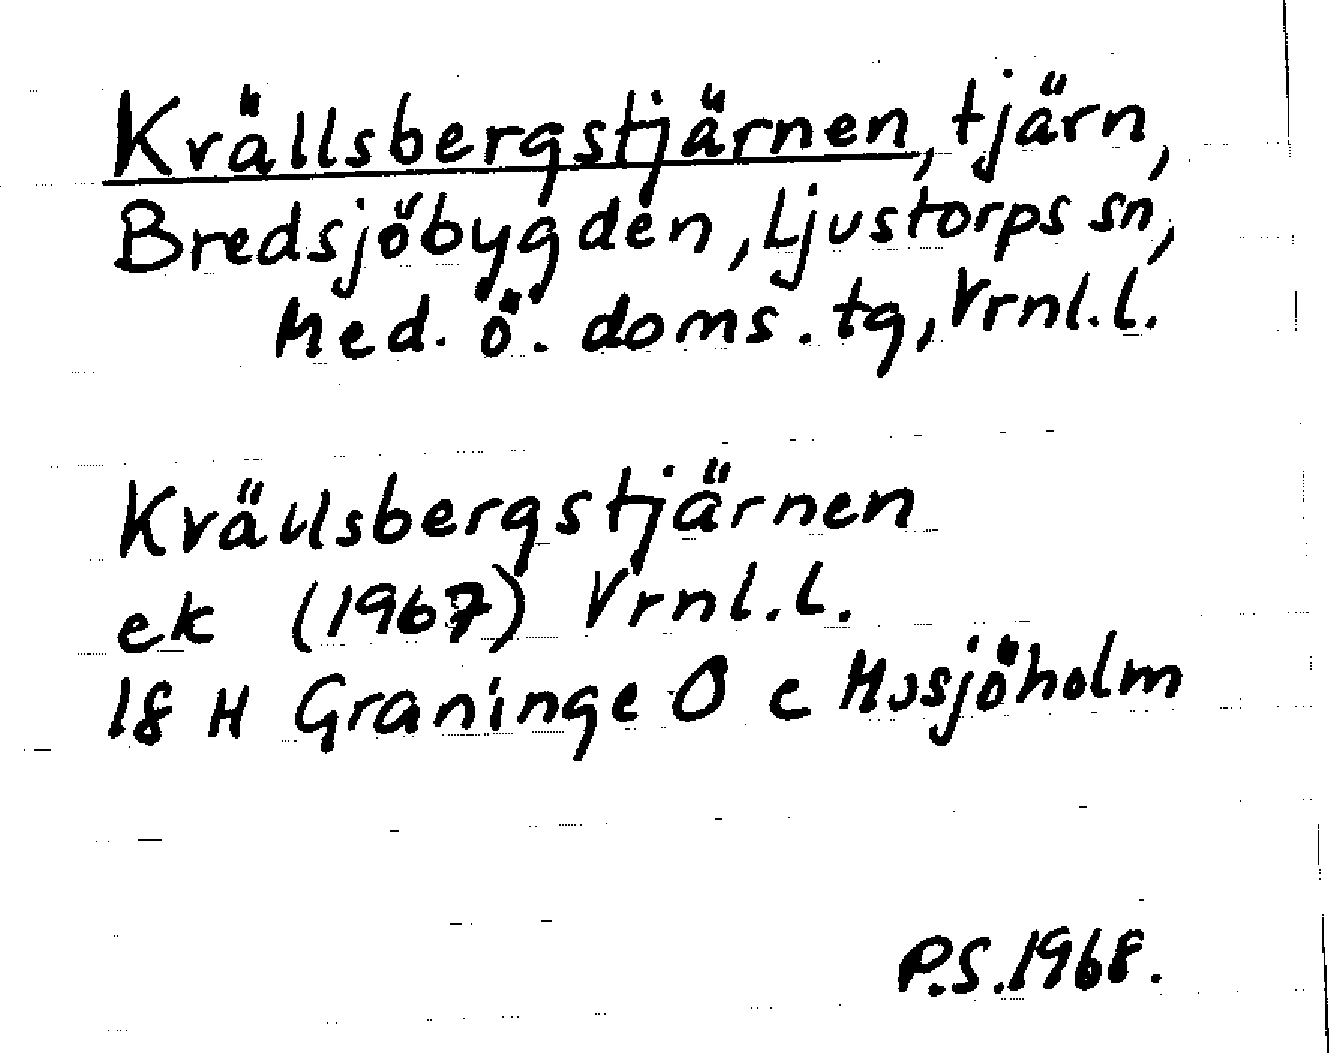 Krällsbergstjärnen, tjärn,
Bredsjöbygden, Ljustorps sn,
Med. ö. doms. tg, Vrnl.l.
Krällsbergstjärnen
ek (1967) Vrnl.l.
18 H Graninge O c Mosjöholm
P.S. 1968.